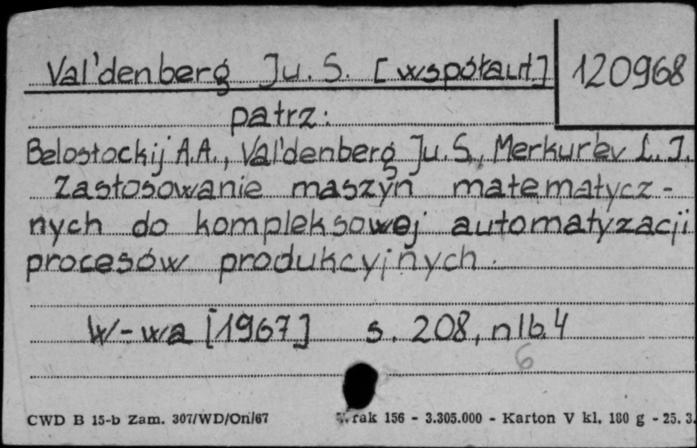 Val'denberg Ju. S. [współaut.] 120968
patrz:
Belostockij A.A., Val'denberg Ju. S., Merkur'ev L. I.
Zastosowanie maszyn matematycz-
nych do kompleksowej automatyzacji
procesów produkcyjnych.
W-wa [1967] s. 208, nlb. 4
6
CWD B 15-b Zam. 307/WD/On/67 rak 156 - 3.305.000 - Karton V kl. 180 g - 25. 3.